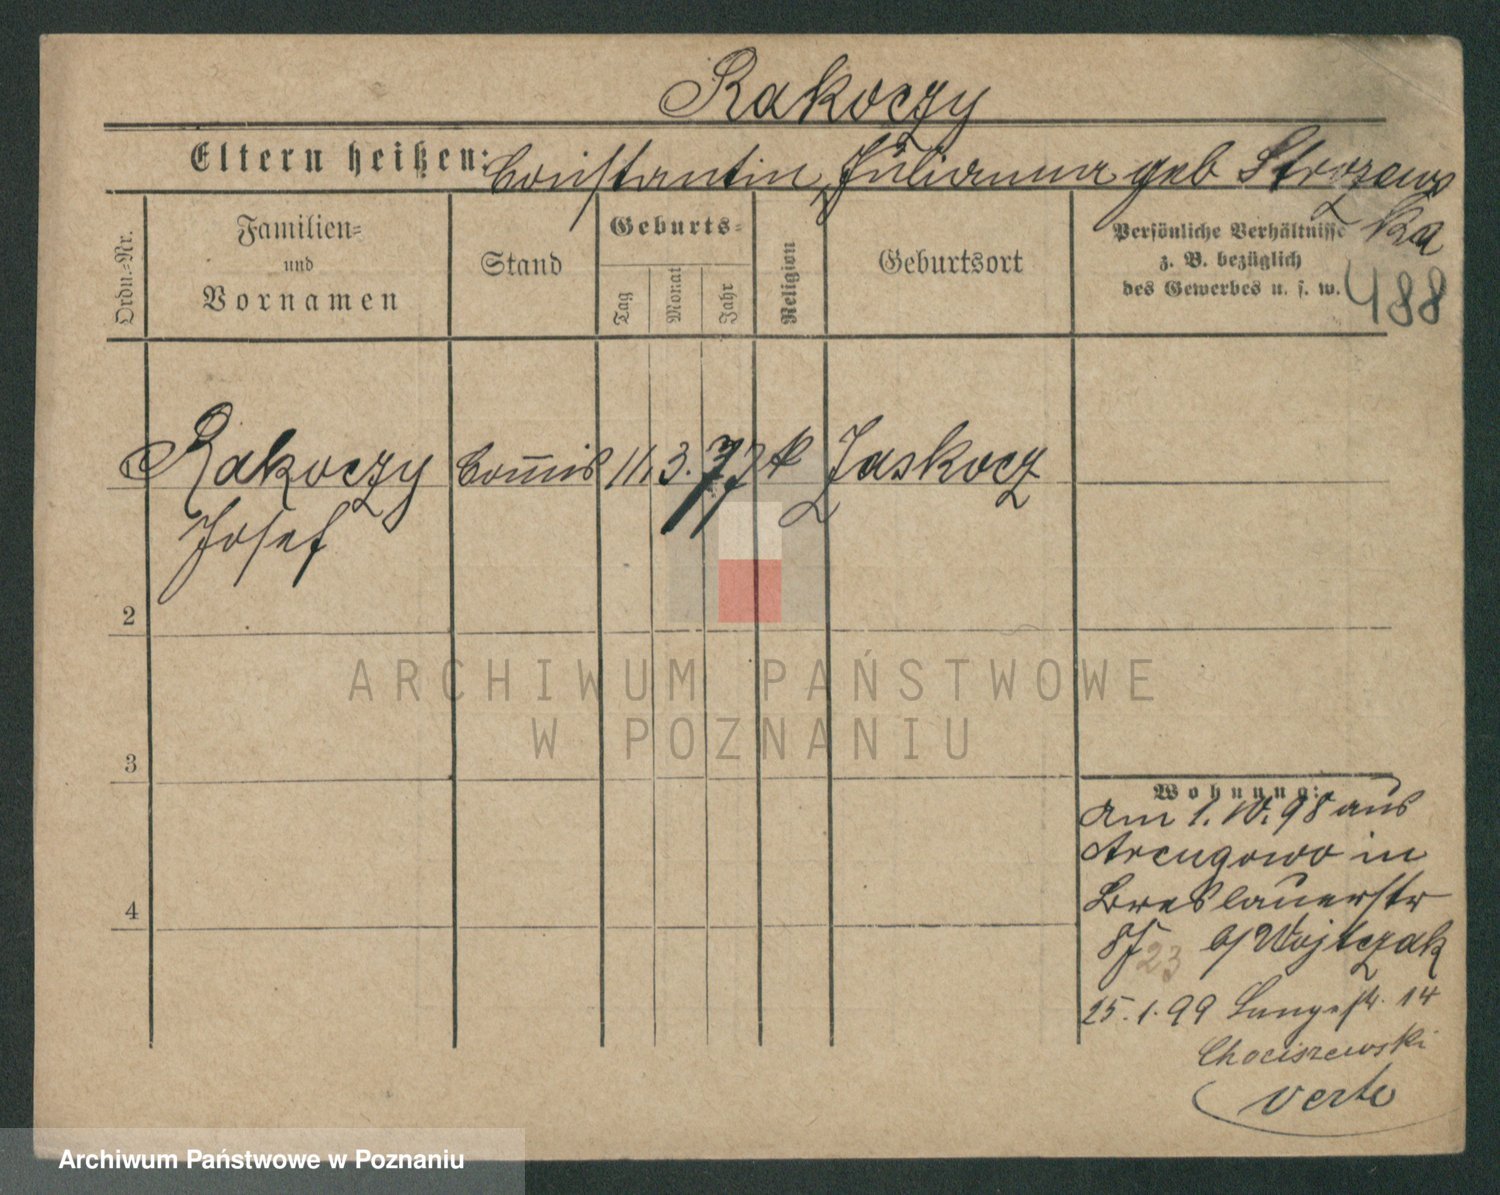 Rakoczy
Eltern heißen: Constantin, Julianna geb Strozews
ka
Ordn.=Nr.
Familien=
und
Vornamen
Stand
Geburts=
Tag
Monat
Jahr
Religion
Geburtsort
Persönliche Verhältnisse
z. B. bezüglich
des Gewerbes u. s. w.
488
Rakoczy Com̅is 11. 3. 77 k Jaskocz
Josef
2
3
4
ARCHIWUM PAŃSTWOWE
W POZNANIU
Wohnung:
am 1. 10. 98 aus
Arcugowo in
Breslauerstr
b/ Wojtczak
23
25. 1. 99 Langestr. 14
Chociszewski
verte
Archiwum Państwowe w Poznaniu